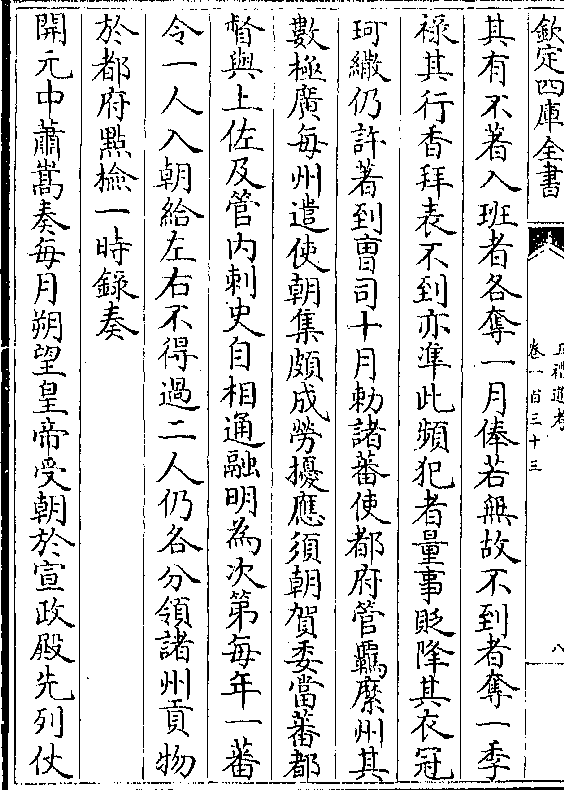 欽定四庫全書
五禮通考
卷一百三十三
八
其有不著入班者各奪一月俸若無故不到者奪一季
祿其行香拜表不到亦準此頻犯者量事貶降其衣冠
珂繖仍許著到曹司十月勅諸蕃使都府管羈縻州其
數極廣每州遣使朝集頗成勞擾應須朝賀委當蕃都
督與上佐及管内刺史自相通融明為次第每年一蕃
令一人入朝給左右不得過二人仍各分領諸州貢物
於都府點檢一時錄奏
開元中蕭嵩奏每月朔望皇帝受朝於宣政殿先列仗